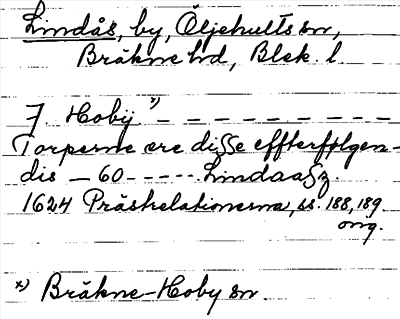 Lindås, by, Öljehults sn,
Bräkne hd, Blek. l.
J. Hoby x) - - - - - - - - - -
Torperne ære disse effterfølgen-
dis - 60 - - - - - Lindaasz.
1624 Prästrelationerna, ss. 188, 189
orig.
x) Bräkne-Hoby sn.